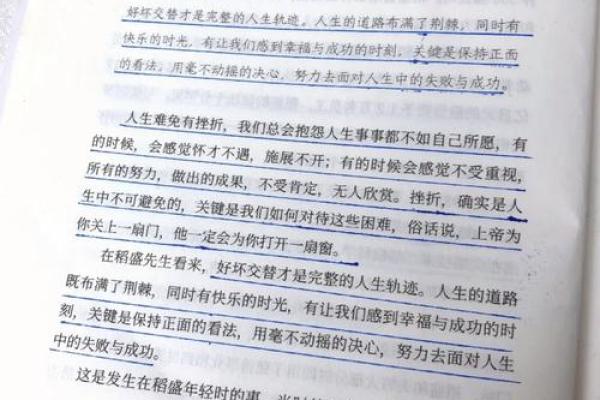 好坏交替才是完整的人生轨迹。人生的道路布满了荆棘，同时有
快乐的时光，有让我们感到幸福与成功的时刻，关键是保持正面
的看法，用毫不动摇的决心，努力去面对人生中的失败与成功。
人生难免有挫折，我们总会抱怨人生事事都不如自己所愿，有
的时候，会感觉怀才不遇，施展不开；有的时候会感觉不受重视，
所有的努力，做出的成果，不受肯定，无人欣赏。挫折，确实是人
生中不可避免的，关键是我们如何对待这些困难，俗话说，上帝为
你关上一扇门，他一定会为你打开一扇窗。
在稻盛先生看来，好坏交替才是完整的人生轨迹。人生的道路
既布满了荆棘，同时有快乐的时光，有让我们感到幸福与成功的时
刻，关键是保持正面的看法，用毫不动摇的决心，努力去面对人生
中的失败与成功。
这是发生在稻盛年轻时的事，当时的